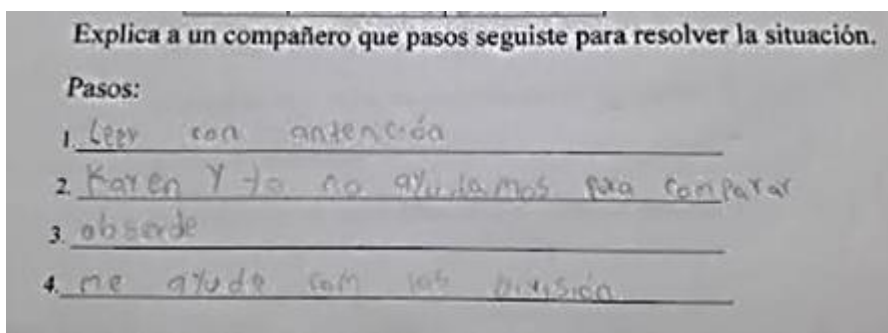 Explica a un compañero que pasos seguiste para resolver la situación.
Pasos:
1. Leer con antención
2. Karen Y yo no ayudamos para comparar
3. obserde
4. me ayude com las división